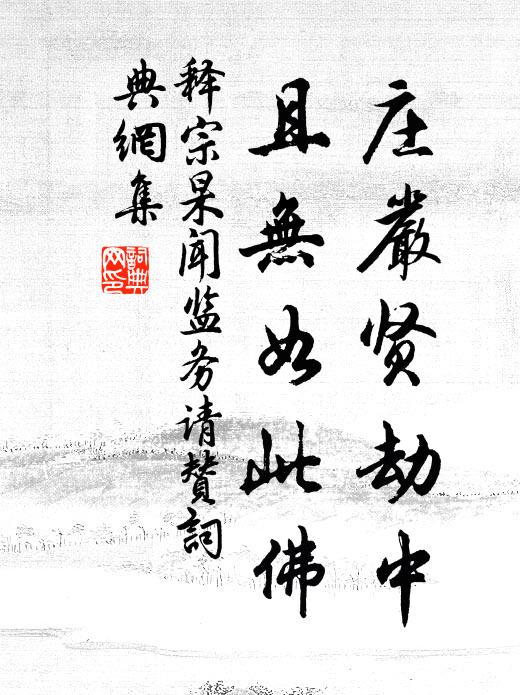 庄嚴贤劫中
且無如此佛
释宗杲闻监务请赞詞
典網集
詞典网印